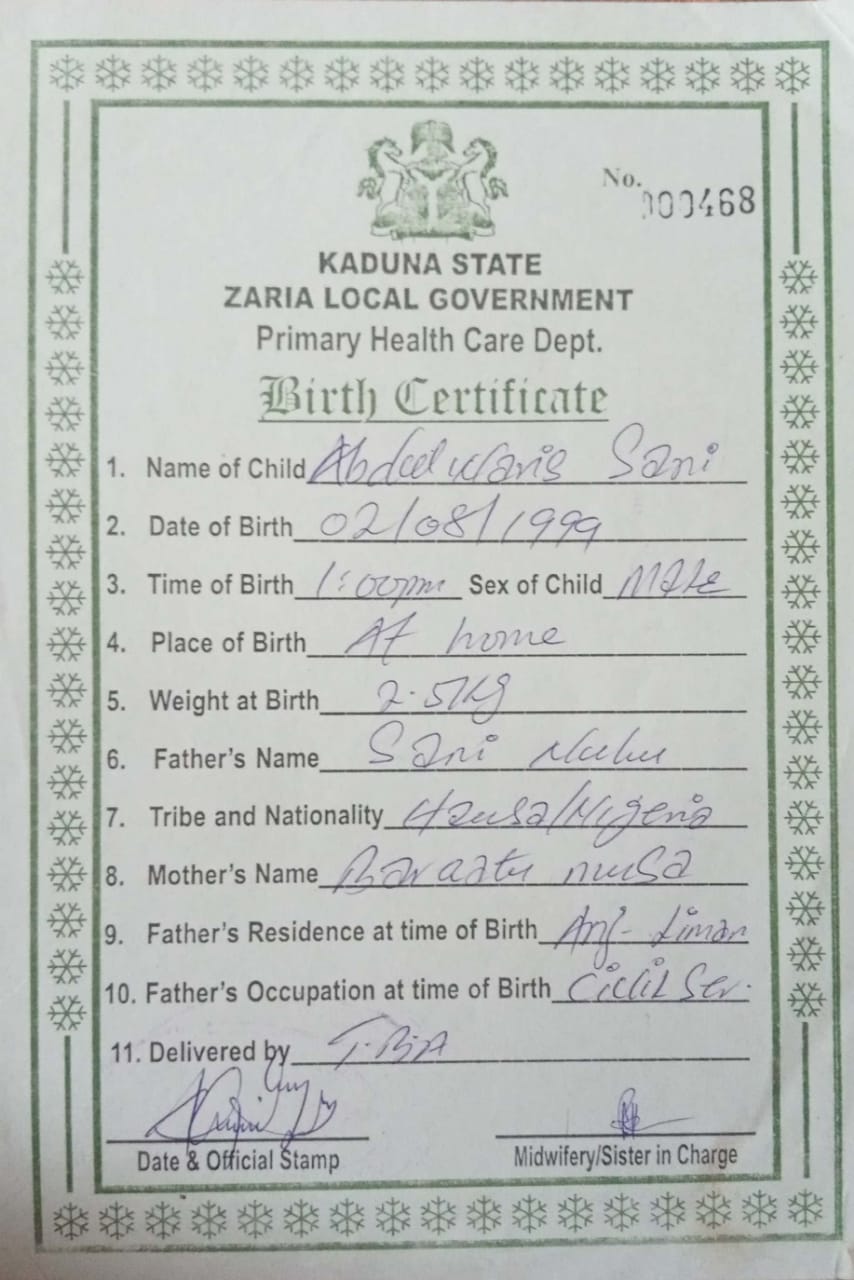 No. 000468
KADUNA STATE
ZARIA LOCAL GOVERNMENT
Primary Health Care Dept.
Birth Certificate
1. Name of Child Abdulwaris Sani
2. Date of Birth 02/08/1999
3. Time of Birth 1:00pm Sex of Child Male
4. Place of Birth At home
5. Weight at Birth 2.5Kg
6. Father's Name Sani Nuhu
7. Tribe and Nationality Hausa/Nigeria
8. Mother's Name Baraatu musa
9. Father's Residence at time of Birth Ang- Liman
10. Father's Occupation at time of Birth Civil Ser.
11. Delivered by T.B.A
Date & Official Stamp
Midwifery/Sister in Charge